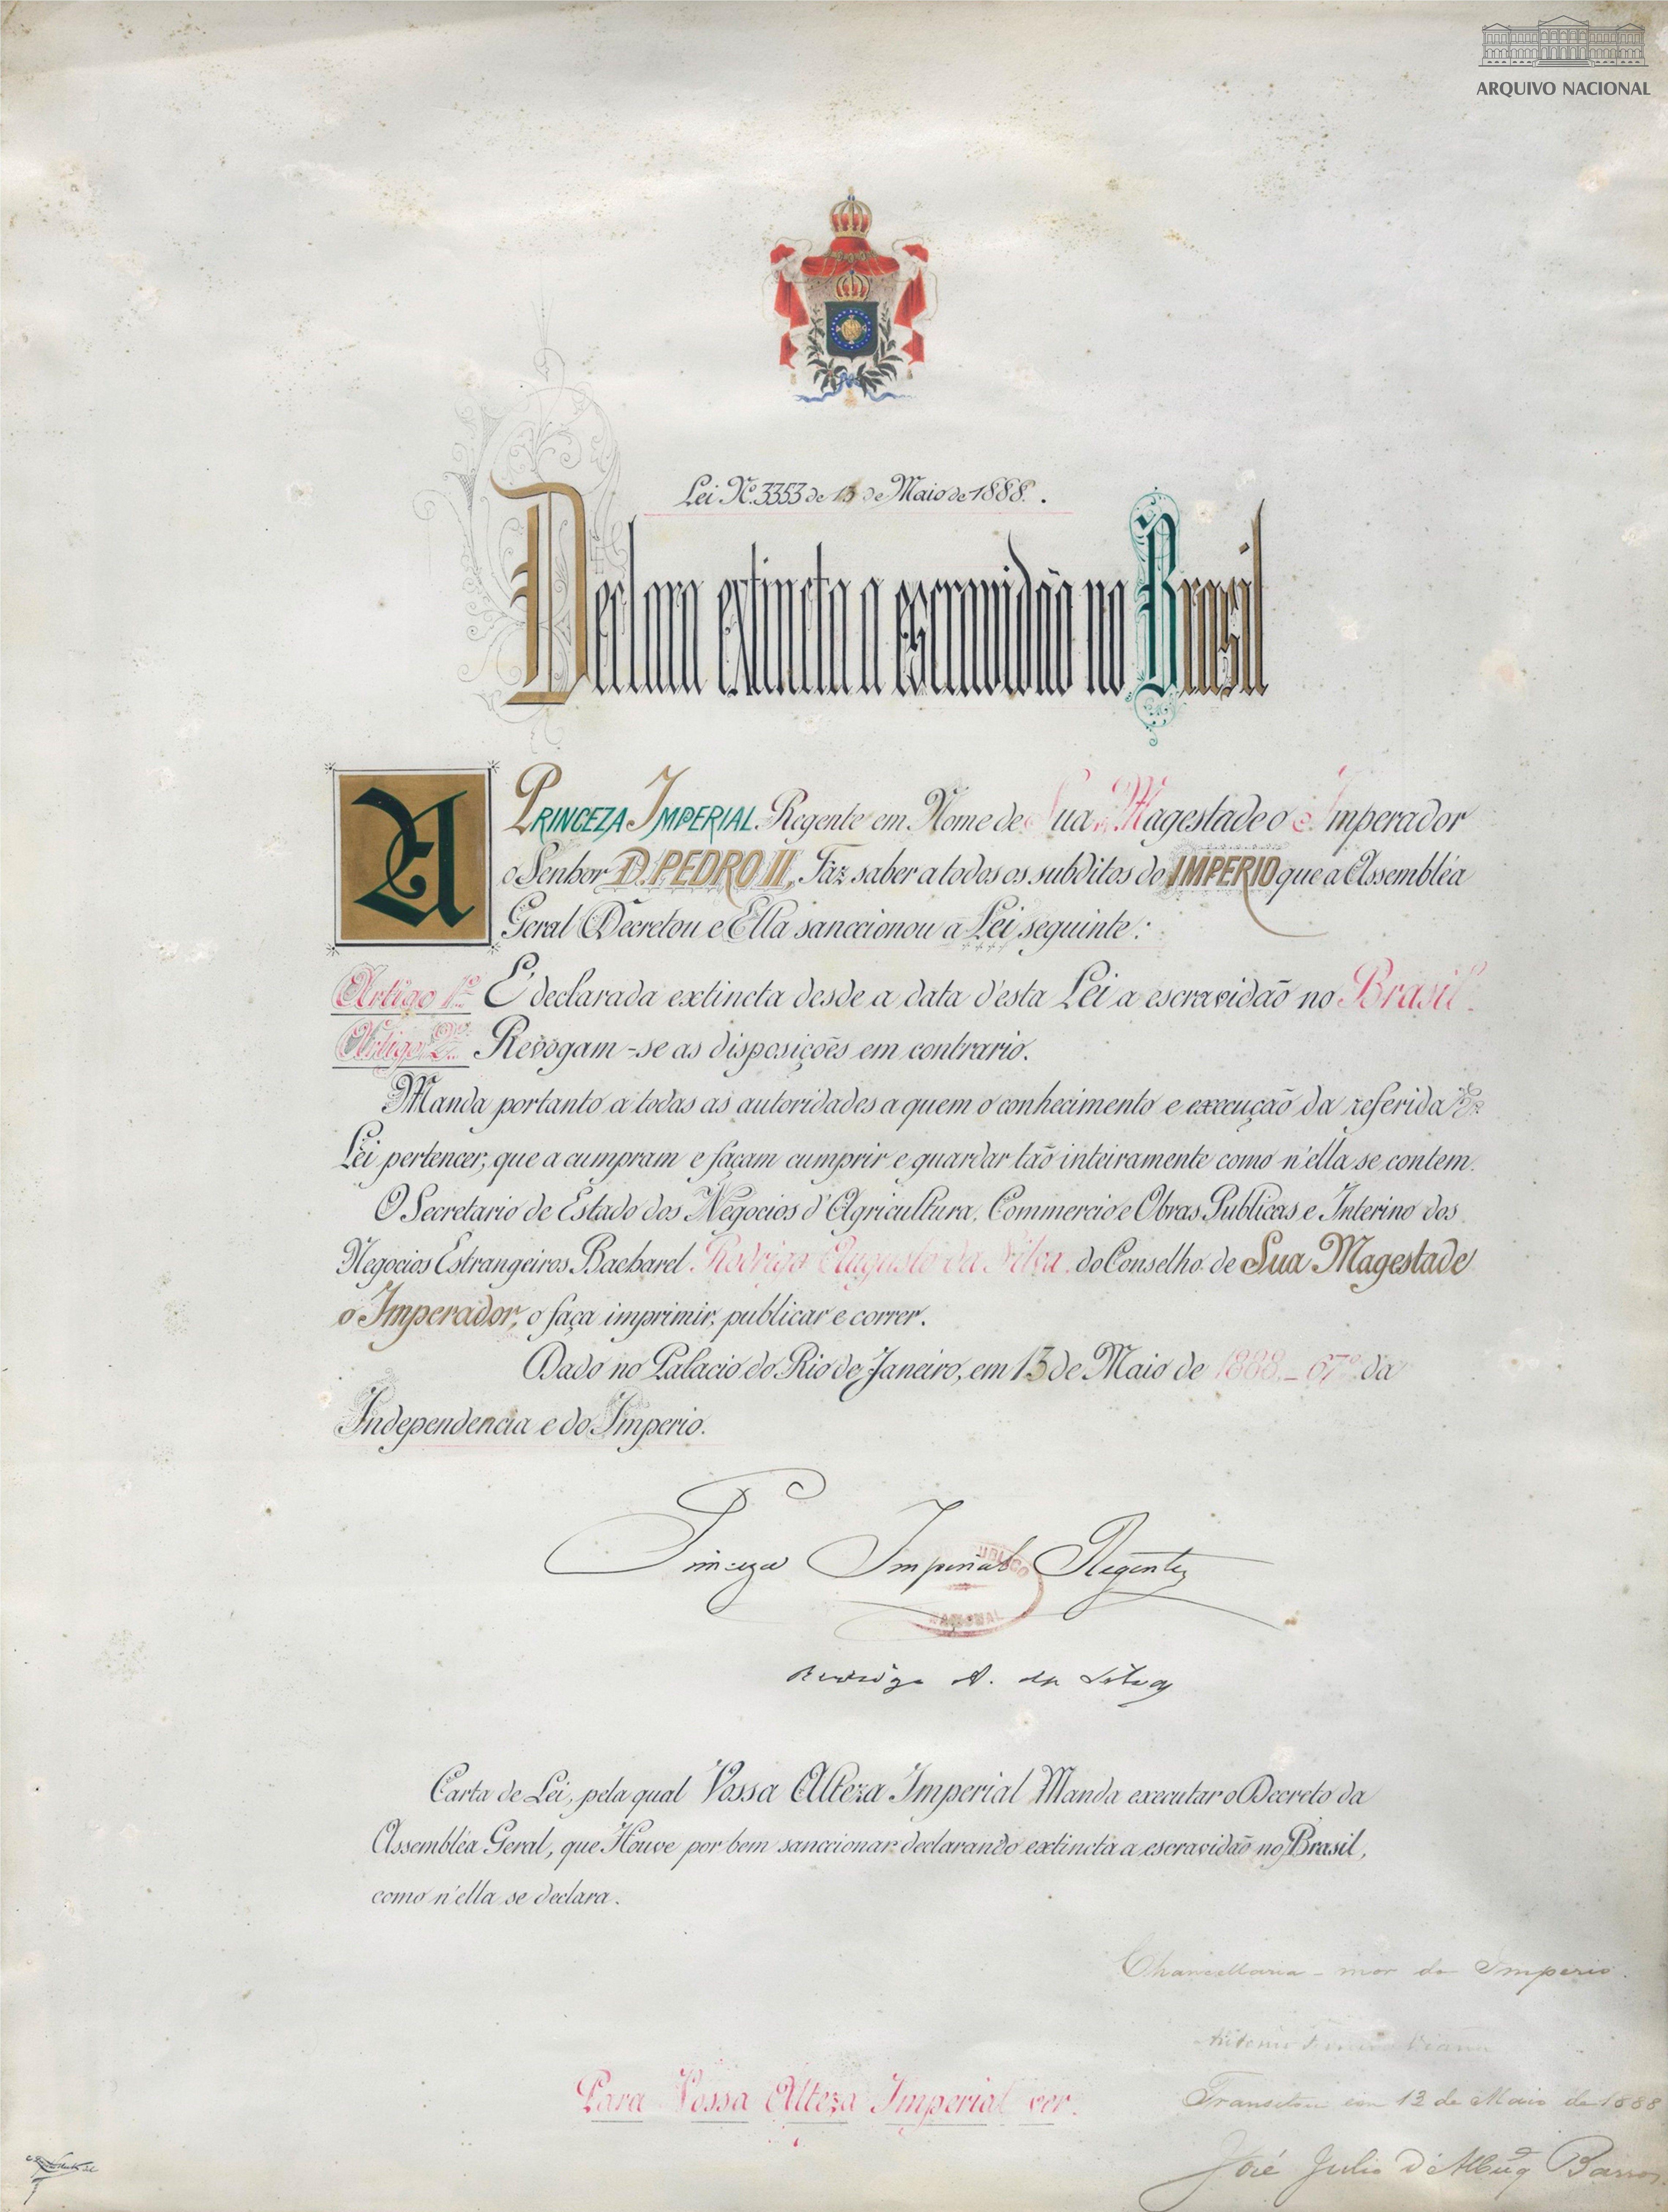 ARQUIVO NACIONAL
Lei Nº 3353 de 13 de Maio de 1888.
Declara extincta a escravidão no Brasil
A PRINCEZA IMPERIAL Regente em Nome de Sua Magestade o Imperador
o Senhor D. PEDRO II, Faz saber a todos os subditos do IMPERIO que a Assembléa
Geral Decretou e Ella sanccionou a Lei seguinte:
Artigo 1º É declarada extincta desde a data d'esta Lei a escravidão no Brasil.
Artigo 2º Revogam-se as disposições em contrario.
Manda portanto a todas as autoridades a quem o conhecimento e execução da referida
Lei pertencer, que a cumpram e façam cumprir e guardar tão inteiramente como n'ella se contem.
O Secretario de Estado dos Negocios d'Agricultura, Commercio e Obras Publicas e Interino dos
Negocios Estrangeiros Bacharel Rodrigo Augusto da Silva do Conselho de Sua Magestade
o Imperador, o faça imprimir, publicar e correr.
Dado no Palacio do Rio de Janeiro, em 13 de Maio de 1888.-67º da
Independencia e do Imperio.
Princeza Imperial Regente
Rodrigo A. da Silva
Carta de Lei, pela qual Vossa Alteza Imperial Manda executar o Decreto da
Assembléa Geral, que Houve por bem sanccionar declarando extincta a escravidão no Brasil,
como n'ella se declara.
Chancellaria-mór do Imperio.
Antonio Vianna
Para Vossa Alteza Imperial ver.
Transitou em 13 de Maio de 1888
José Julio d'Albuqᵉ Barros